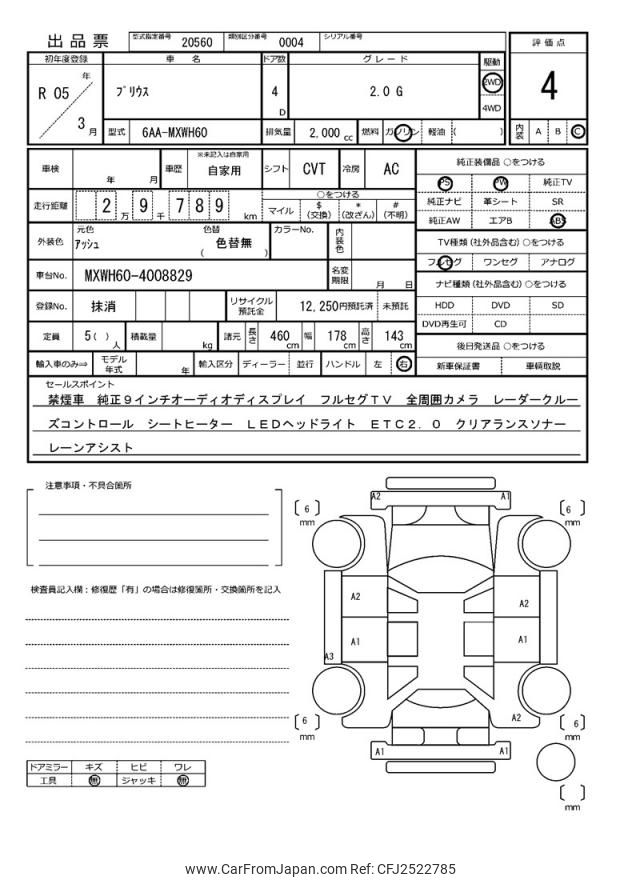 出品票 型式指定番号 20560 類別区分番号 0004 シリアル番号
評価点
4
初年度登録 車名 ドア数 グレード 駆動
R 05 年 3 月
プリウス 4 D 2.0 G 2WD 4WD
型式 6AA-MXWH60 排気量 2,000 cc 燃料 ガソリン 軽油 ( )
内装 A B C
車検 年 月 車歴 ※未記入は自家用 自家用 シフト CVT 冷房 AC
走行距離 2 万 9 千 7 8 9 km
○をつける
マイル $ (交換) * (改ざん) # (不明)
外装色 元色 アッシュ 色替 ( 色替無 ) カラーNo. 内装色
車台No. MXWH60-4008829 名変期限 月 日
登録No. 抹消 リサイクル預託金 12,250円預託済 未預託
定員 5( ) 人 積載量 kg 諸元 長さ 460 cm 幅 178 cm 高さ 143 cm
輸入車のみ⇒ モデル年式 年 輸入区分 ディーラー 並行 ハンドル 左 右
純正装備品 ○をつける
PS PW 純正TV
純正ナビ 革シート SR
純正AW エアB ABS
TV種類(社外品含む)○をつける
フルセグ ワンセグ アナログ
ナビ種類(社外品含む)○をつける
HDD DVD SD
DVD再生可 CD
後日発送品 ○をつける
新車保証書 車輌取説
セールスポイント
禁煙車 純正9インチオーディオディスプレイ フルセグTV 全周囲カメラ レーダークルー
ズコントロール シートヒーター LEDヘッドライト ETC2.0 クリアランスソナー
レーンアシスト
注意事項・不具合箇所
検査員記入欄:修復歴「有」の場合は修復箇所・交換箇所を記入
ドアミラー キズ ヒビ ワレ
工具 無 ジャッキ 無
A2 A1
[ 6 ] mm [ 6 ] mm
A2 A2
A1 A1
A3
A2
[ 6 ] mm [ 6 ] mm
A1 A1
[ ] mm
www.CarFromJapan.com Ref: CFJ2522785